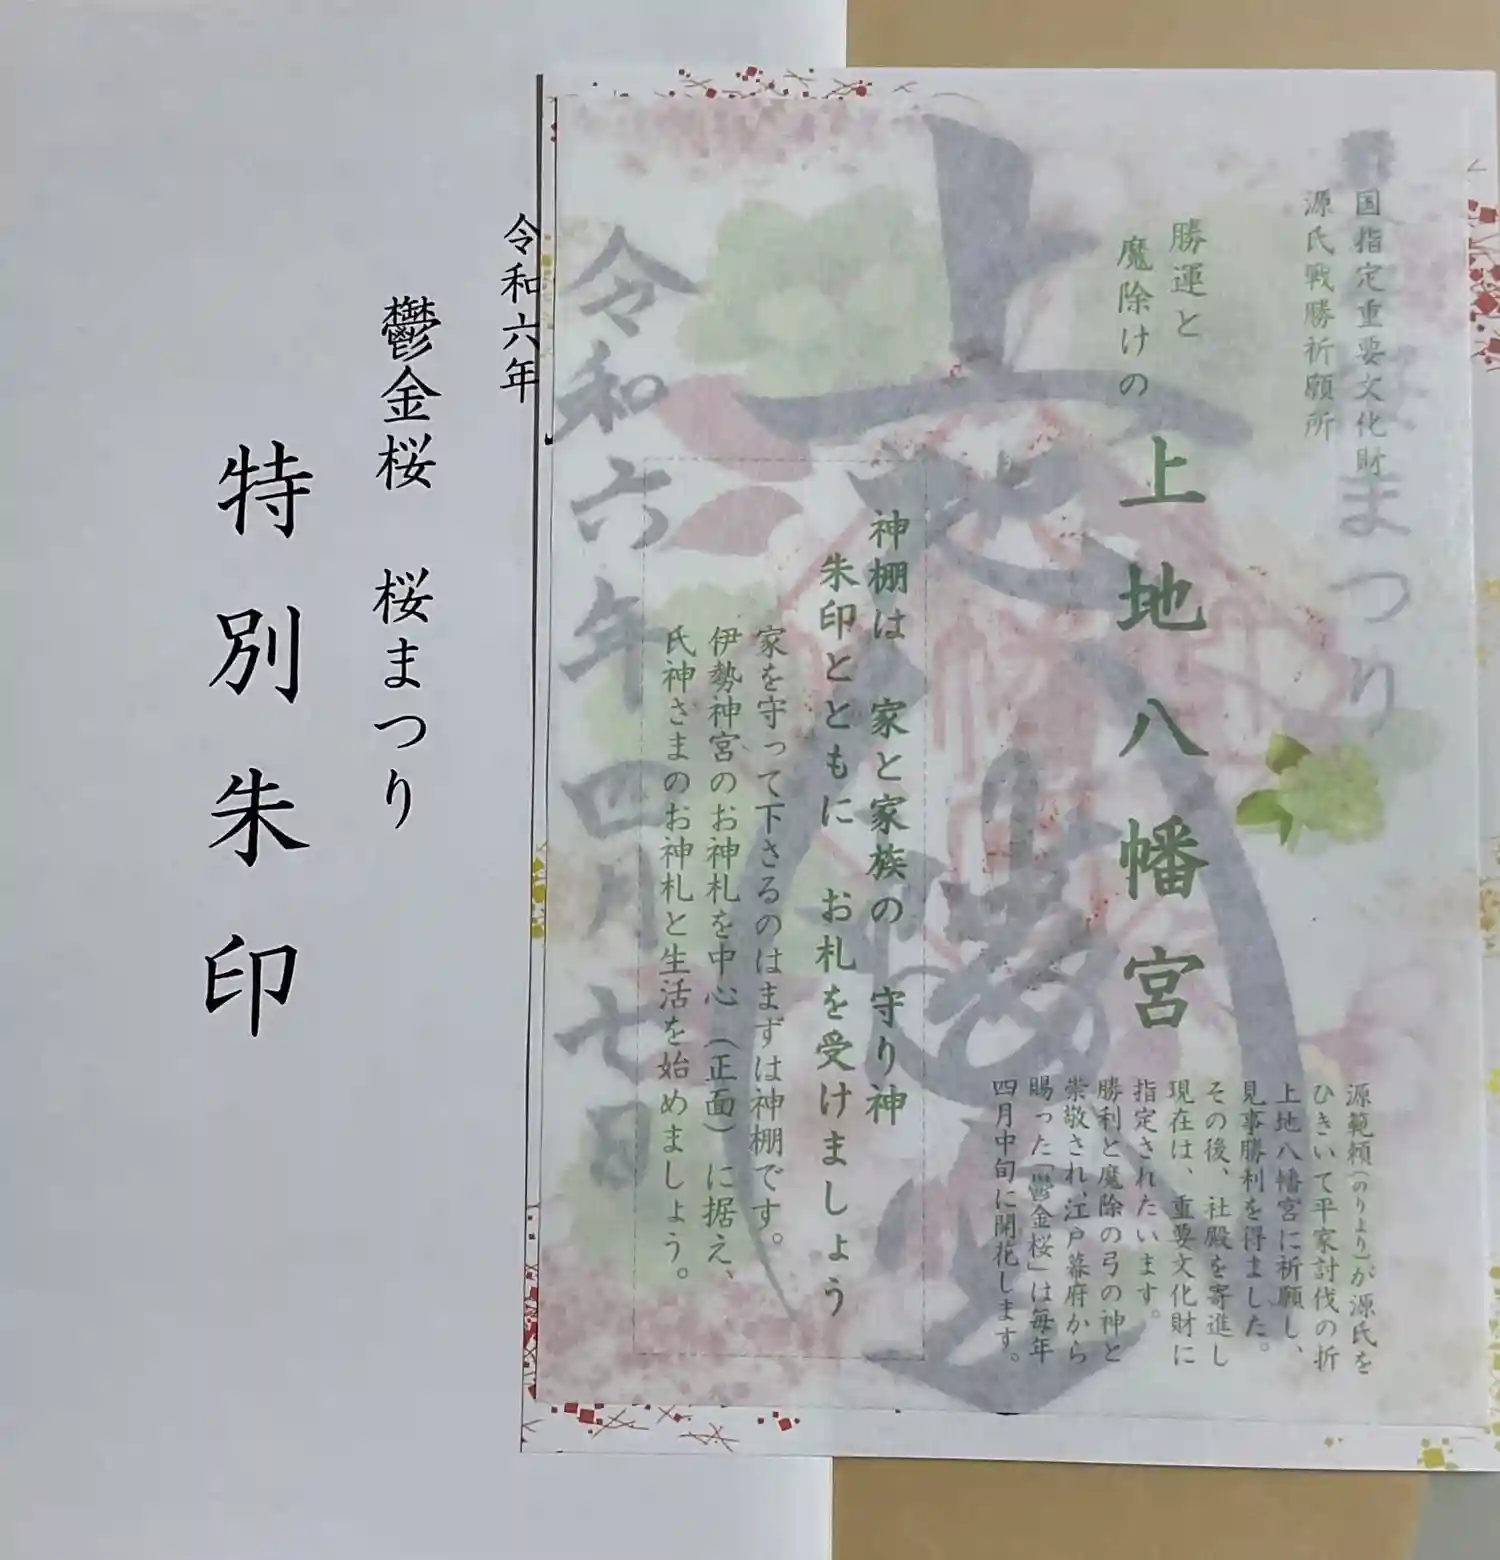 国指定重要文化財
源氏戦勝祈願所
勝運と
魔除けの
上地八幡宮
源範頼(のりより)が源氏を
ひきいて平家討伐の折
上地八幡宮に祈願し、
見事勝利を得ました。
その後、社殿を寄進し
現在は、重要文化財に
指定されたいます。
勝利と魔除の弓の神と
崇敬され、江戸幕府から
賜った「鬱金桜」は毎年
四月中旬に開花します。
神棚は 家と家族の 守り神
朱印とともに お札を受けましょう
家を守って下さるのはまずは神棚です。
伊勢神宮のお神札を中心（正面）に据え、
氏神さまのお神札と生活を始めましょう。
まつり
上地八幡宮
令和六年四月七日
令和六年
鬱金桜 桜まつり
特別朱印